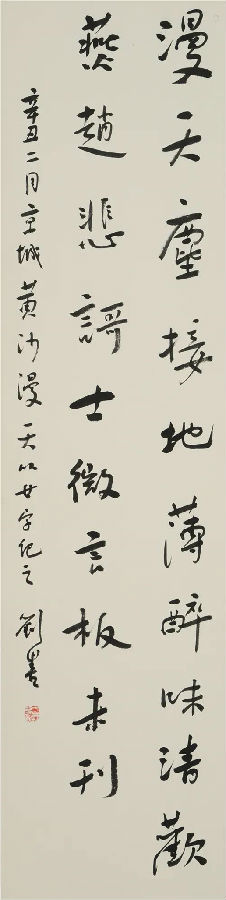 漫天塵接地薄醉味清歡
燕趙悲謌士微言板未刊
辛丑二月京城黄沙漫天以廿字纪之 劉墨